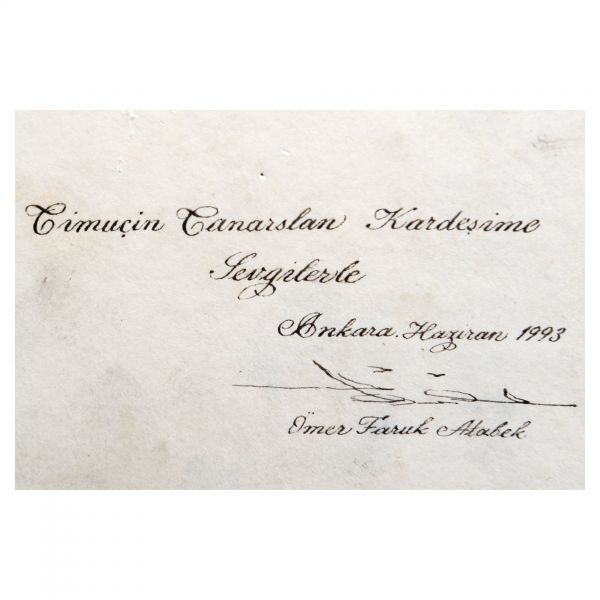 Timuçin Tanarslan Kardeşime
Sevgilerle
Ankara. Haziran 1993
Ömer Faruk Atabek